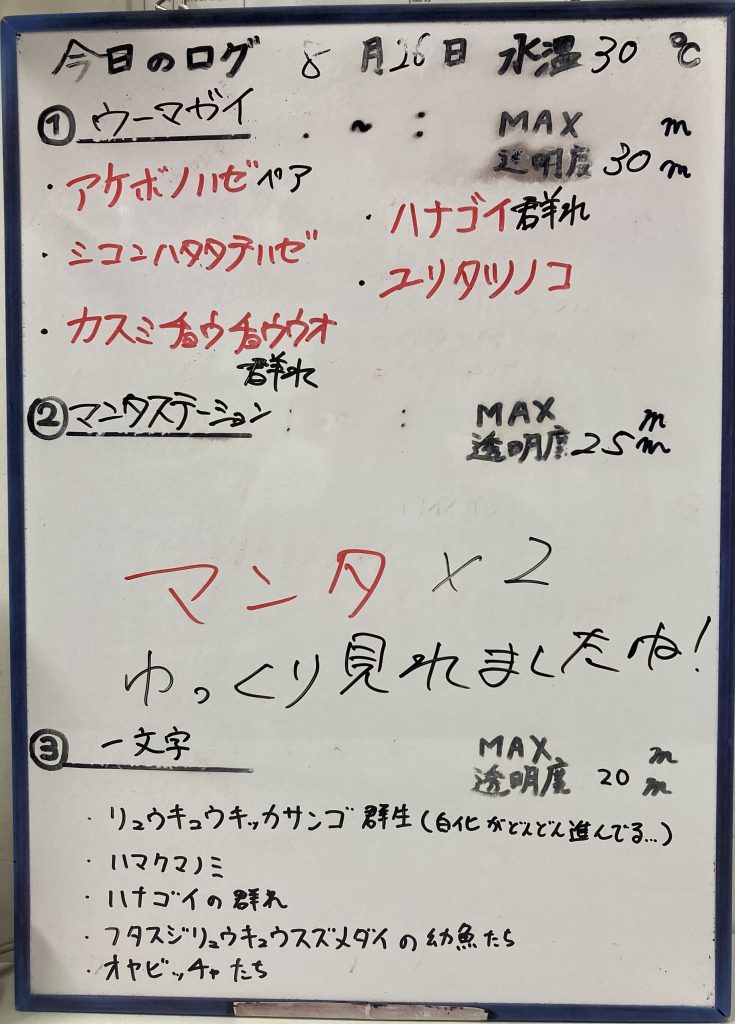 今日のログ 8月26日 水温30℃
①ウーマガイ : ~ : MAX m
透明度30m
・アケボノハゼペア
・ハナゴイ群れ
・シコンハタタテハゼ
・ユリタツノコ
・カスミチョウチョウウオ
群れ
②マンタステーション : : MAX m
透明度25m
マンタ×2
ゆっくり見れましたね!
③一文字 MAX m
透明度20m
・リュウキュウキッカサンゴ群生(白化がどんどん進んでる...)
・ハマクマノミ
・ハナゴイの群れ
・フタスジリュウキュウスズメダイの幼魚たち
・オヤビッチャたち